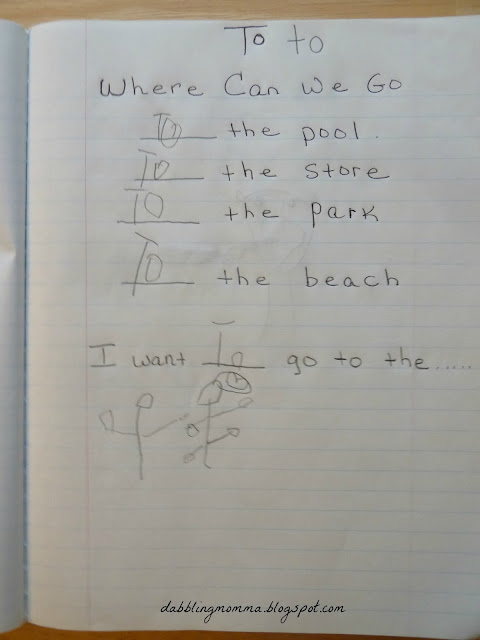 To to
Where Can We Go
To the pool.
To the store
To the park
To the beach
I want To go to the.....
dabblingmomma.blogspot.com